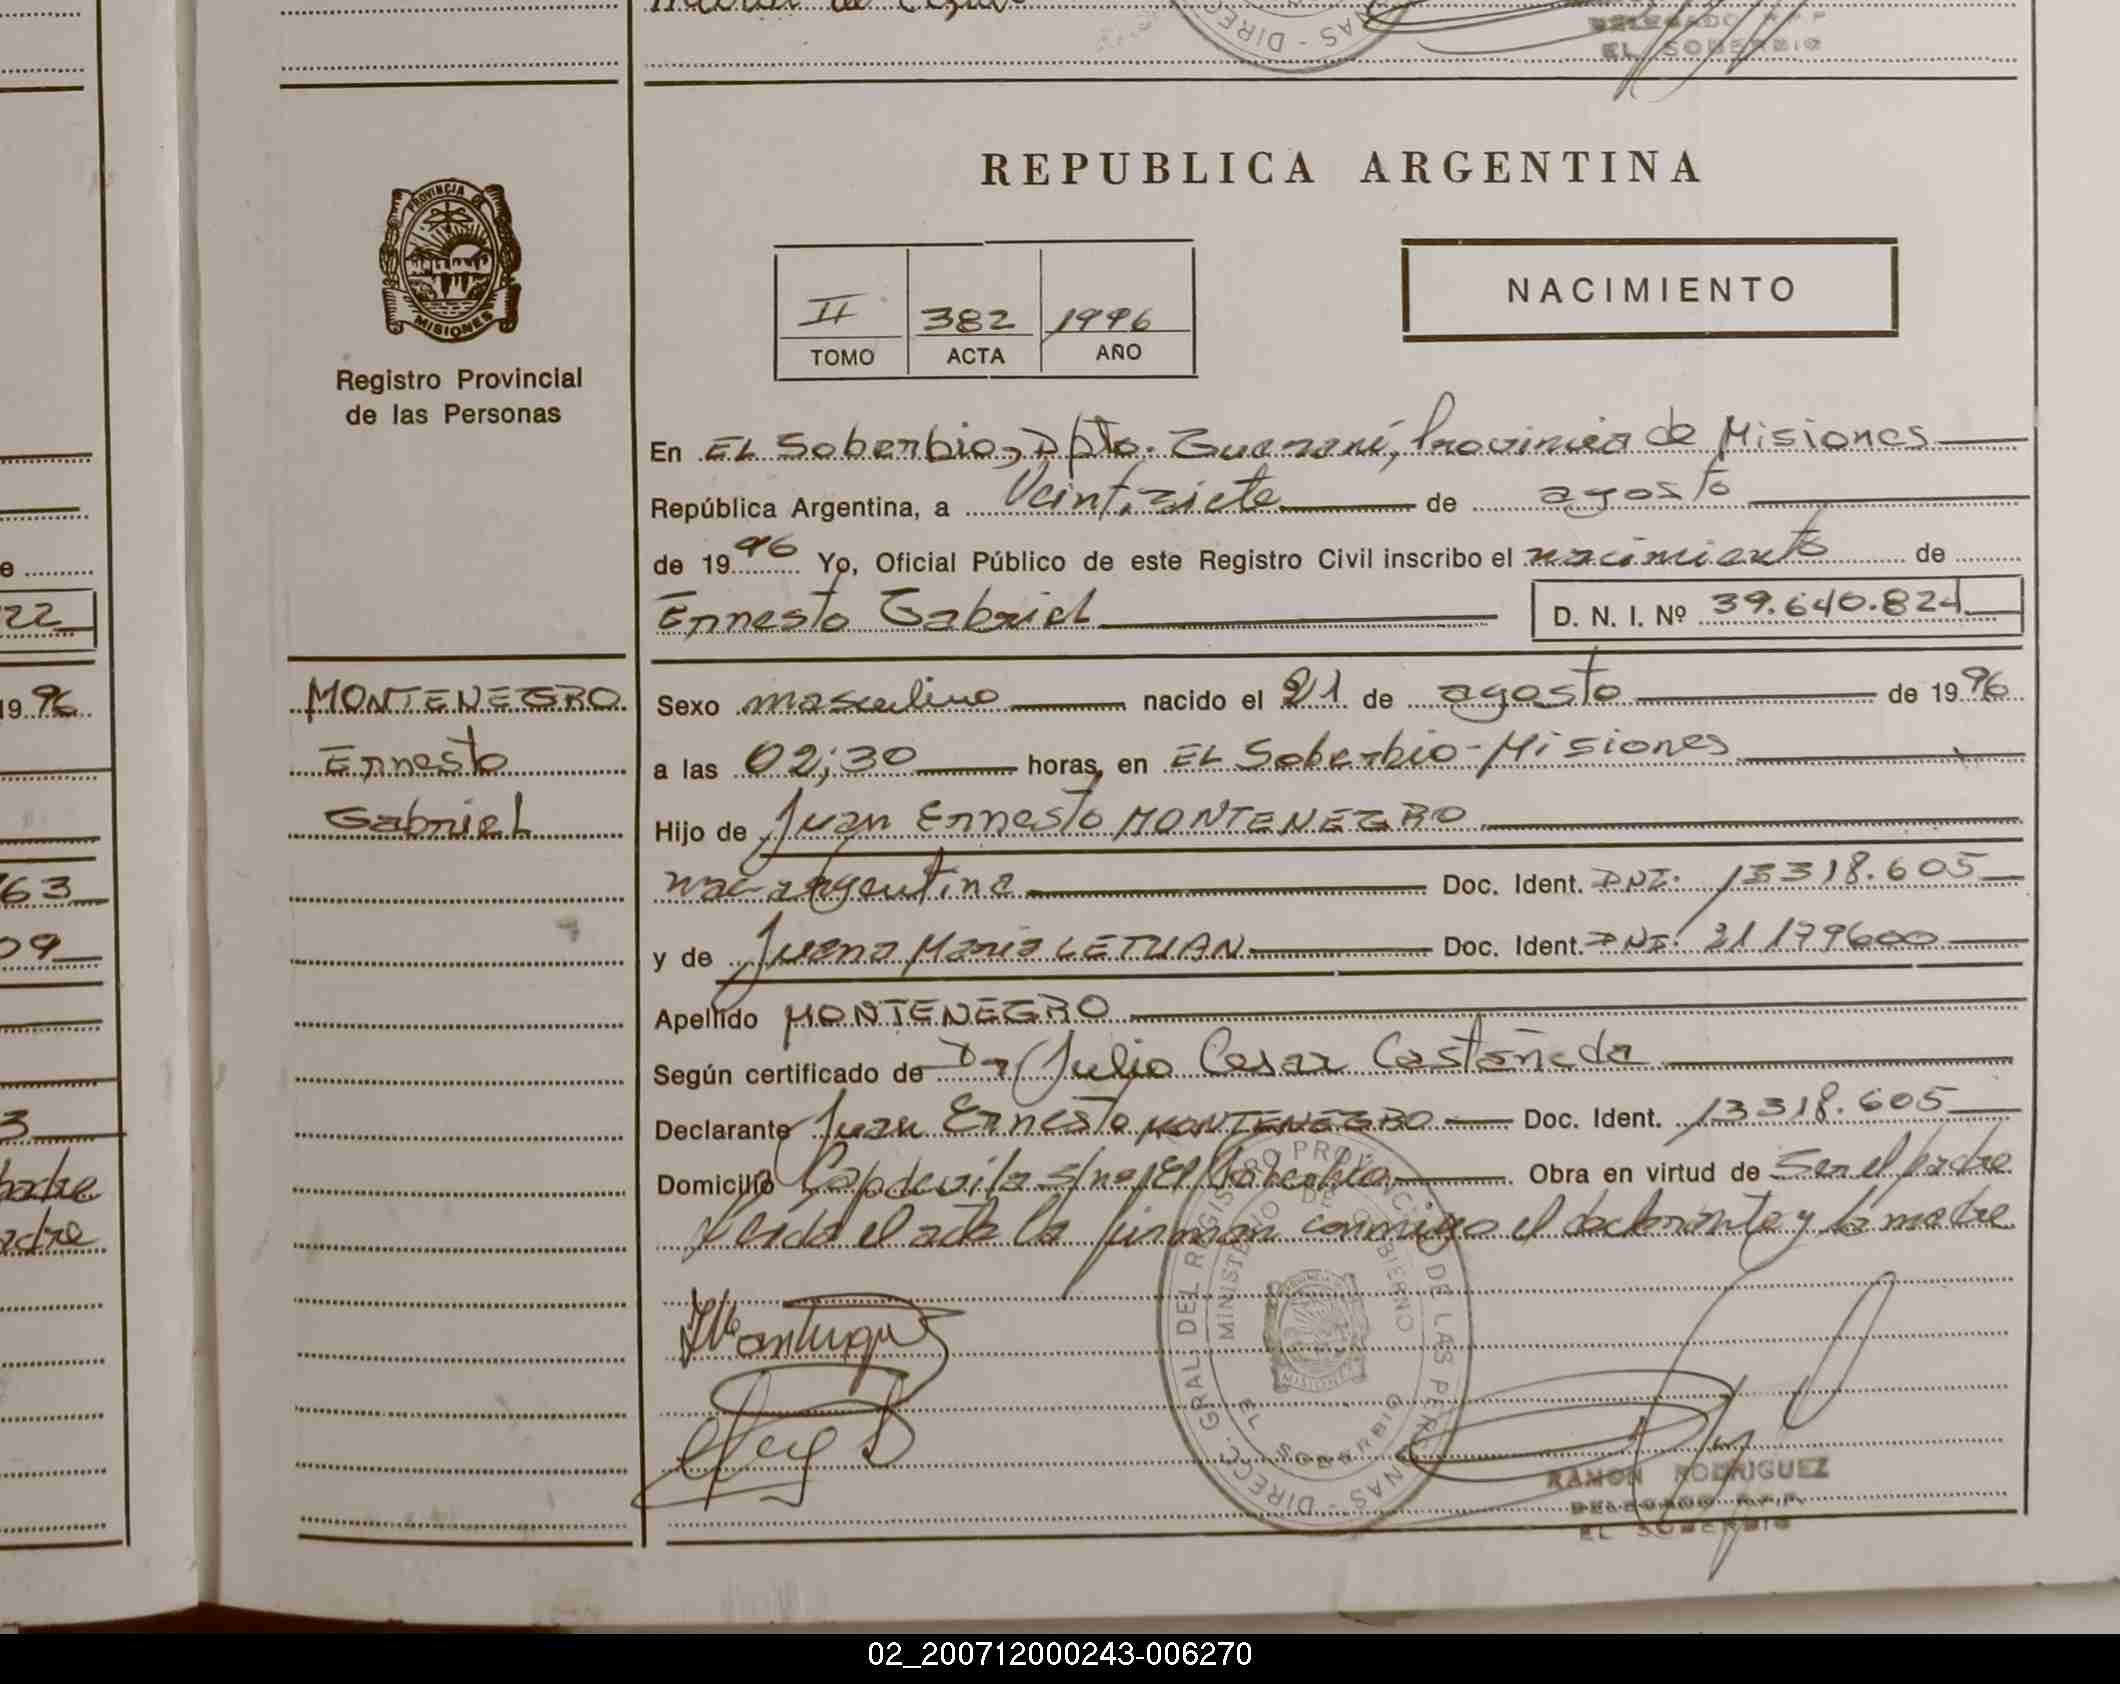 DELEGADO R.P.P
EL SOBERBIO
REPUBLICA ARGENTINA
PROVINCIA DE
MISIONES
Registro Provincial
de las Personas
II 382 1996
TOMO ACTA AÑO
NACIMIENTO
En EL Soberbio, Dpto. Guarani, Provincia de Misiones
República Argentina, a Veintisiete de agosto
de 1996 Yo, Oficial Público de este Registro Civil inscribo el nacimiento de
Ernesto Gabriel D. N. I. Nº 39.640.824
MONTENEGRO
Ernesto
Gabriel
Sexo masculino nacido el 21 de agosto de 1996
a las 02;30 horas, en EL Soberbio-Misiones
Hijo de Juan Ernesto MONTENEGRO
nac-argentina Doc. Ident. DNI. 13318.605
y de Juana Maria LETUAN Doc. Ident. DNI. 21179600
Apellido MONTENEGRO
Según certificado de Dr Julio Cesar Castañeda
Declarante Juan Ernesto MONTENEGRO Doc. Ident. 13318.605
Domicilio Capdevila s/no El Soberbio Obra en virtud de Ser el padre
Y leida el acta la firman conmigo el declarante y la madre
DIRECC. GRAL. DEL REGISTRO PROVINCIAL DE LAS PERSONAS - DIRECC.
MINISTERIO DE GOBIERNO
MISIONES
EL SOBERBIO
RAMON RODRIGUEZ
DELEGADO R.P.P.
EL SOBERBIO
22
19 96
63
09
3
padre
madre
02_200712000243-006270